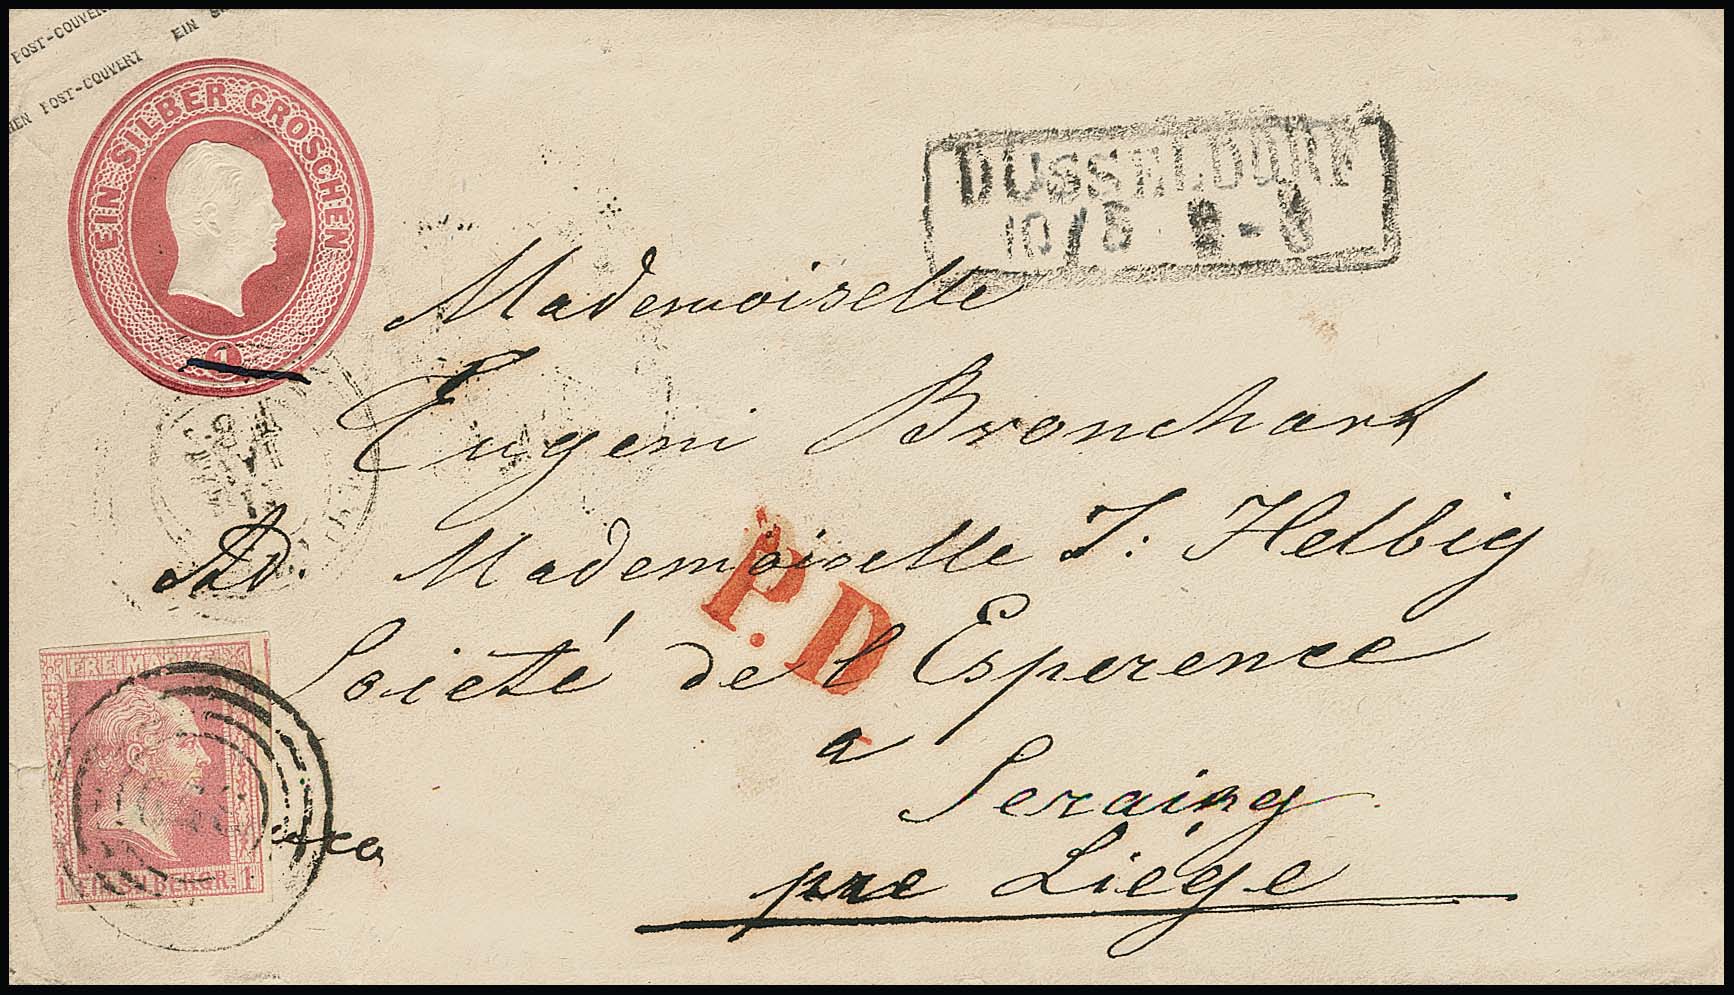 POST-COUVERT
POST-COUVERT EIN
EIN SILBER GROSCHEN
1
DUSSELDORF
10/5
Mademoiselle
Eugeni Bronchart
Ad. Mademoiselle J: Helbig
P.D.
Soieté de l Esperence
a
Seraing
pre Liége
FREIMARKE
1 EIN SILBERGR. 1